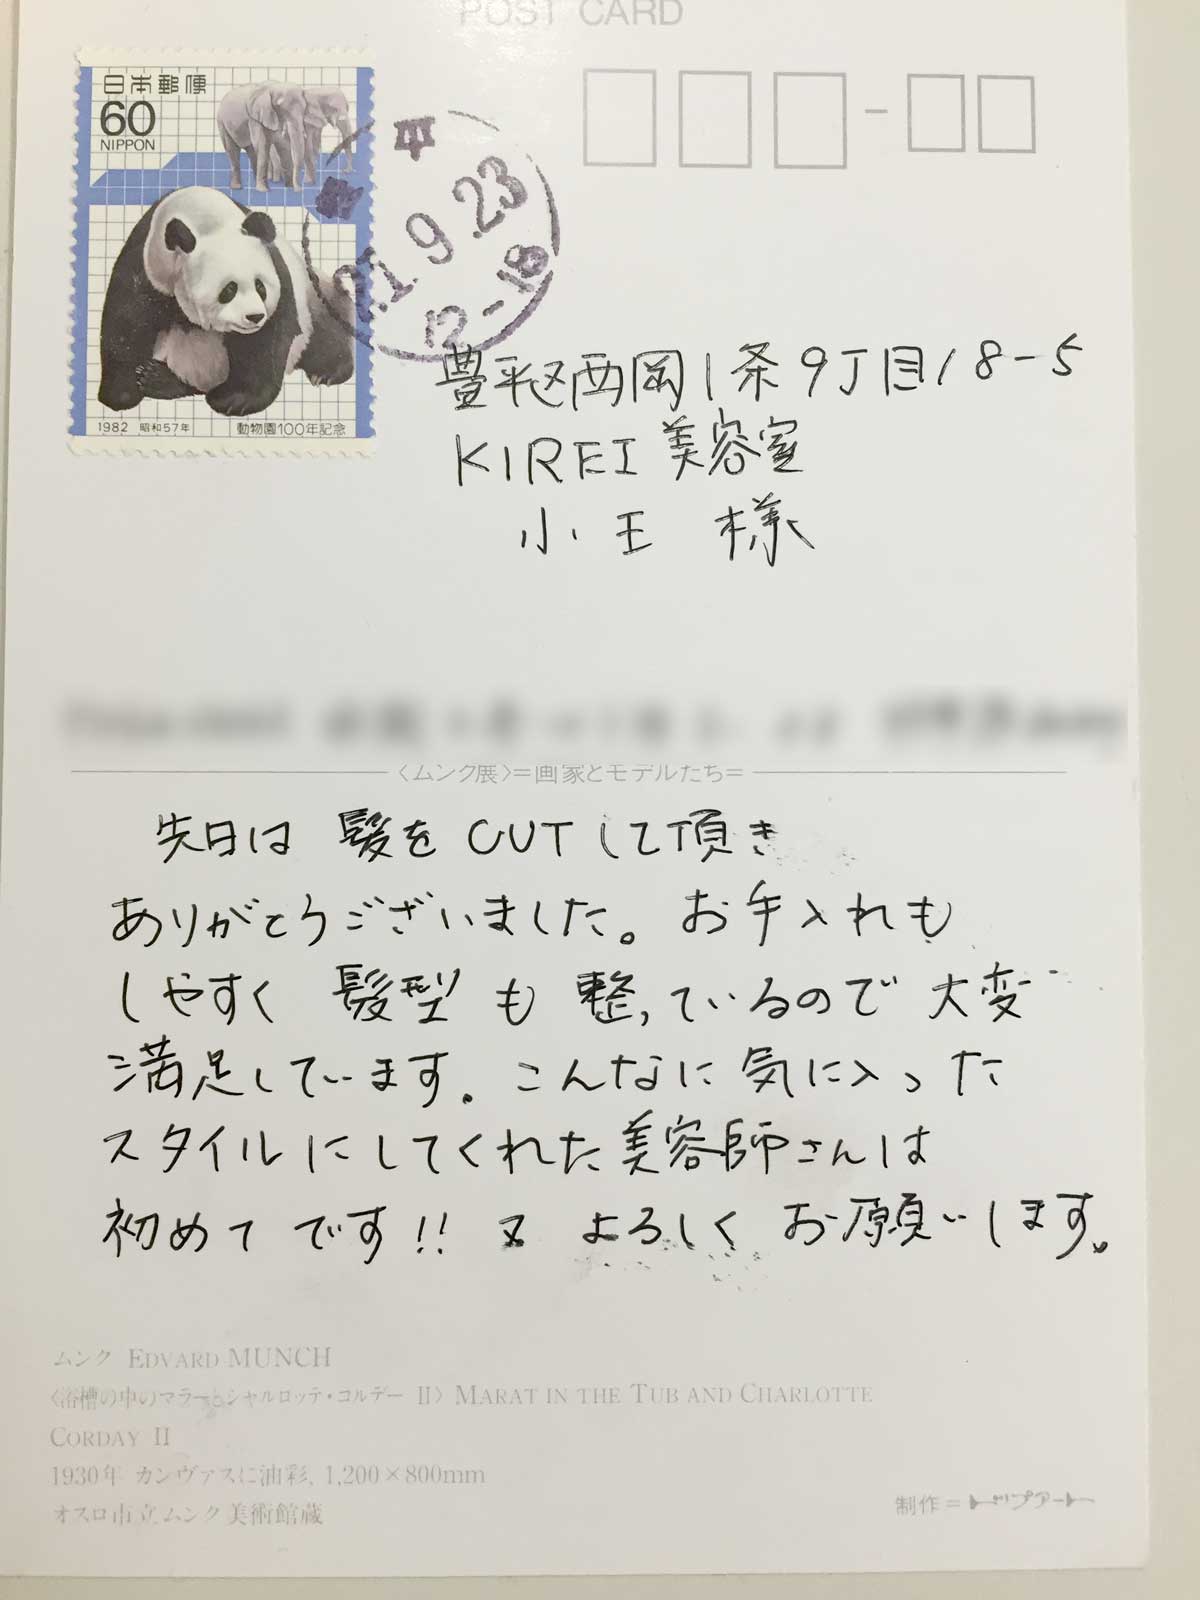 POST CARD
日本郵便
60
NIPPON
1982 昭和57年 動物園100年記念
9.23
12-18
豊平区西岡1条9丁目18-5
KIREI美容室
小王 様
〈ムンク展〉=画家とモデルたち=
先日は 髪を CUTして頂き
ありがとうございました。お手入れも
しやすく 髪型も 整っているので 大変
満足しています。こんなに気に入った
スタイルにしてくれた美容師さんは
初めてです!! 又 よろしく お願いします。
ムンク EDVARD MUNCH
〈浴槽の中のマラーとシャルロッテ・コルデー II〉 MARAT IN THE TUB AND CHARLOTTE
CORDAY II
1930年 カンヴァスに油彩, 1,200×800mm
オスロ市立ムンク美術館蔵
制作=トップアート